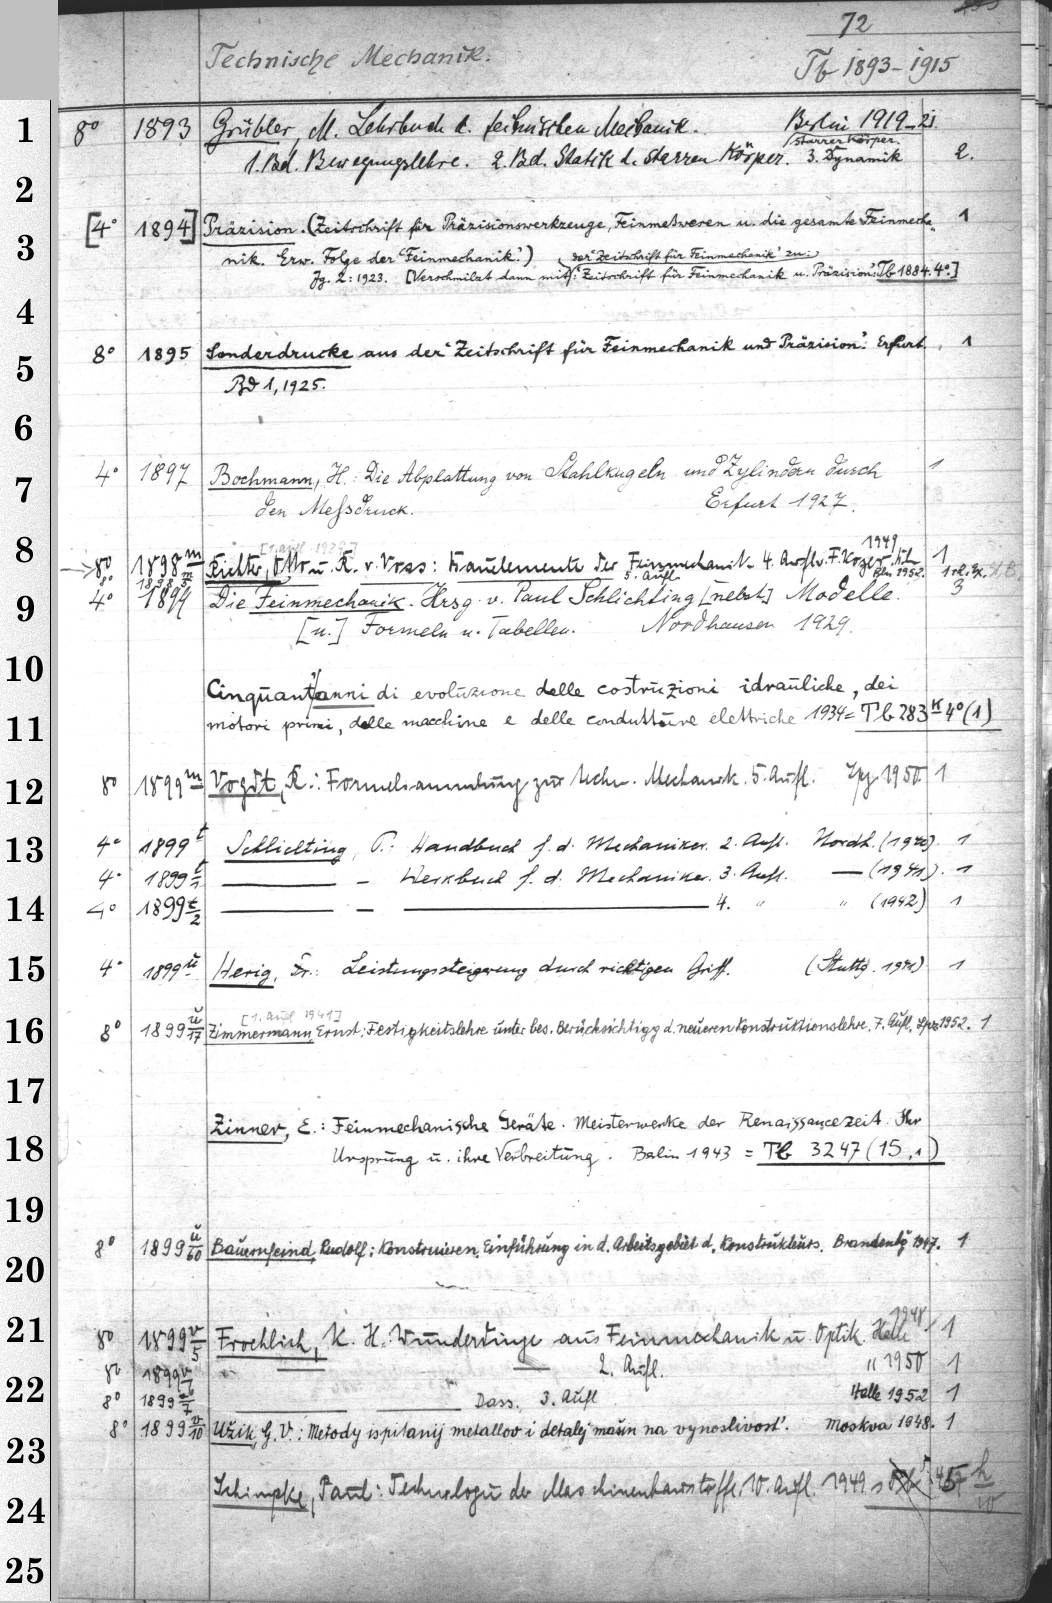 72
Technische Mechanik.
Tb 1893-1915
1 8° 1893 Grübler, M. Lehrbuch d. technischen Mechanik. Berlin 1919-21
1. Bd. Bewegungslehre. 2. Bd. Statik d. starren Körper. 3. Dynamik starrer Körper. 2.
2
[4° 1894] Präzision. (Zeitschrift für Präzisionswerkzeuge, Feinmeßwesen u. die gesamte Feinmecha- 1
3 nik. Erw. Folge der "Feinmechanik".) der "Zeitschrift für Feinmechanik" zu:
Jg. 2: 1923. [Verschmilzt dann mit: "Zeitschrift für Feinmechanik u. Präzision": Tb 1884. 4°.]
4
5 8° 1895 Sonderdrucke aus der "Zeitschrift für Feinmechanik und Präzision". Erfurt. 1
Bd 1, 1925.
6
7 4° 1897 Bochmann, H.: Die Abplattung von Stahlkugeln und Zylindern durch 1
den Messdruck. Erfurt 1927.
8 [1. Aufl. 1929] 1949
8° 1898 m Richter, Otto u. R. v. Voss: Bauelemente der Feinmechanik 4. Aufl. v. F. 1
8° 1898 m 5. Aufl Bln 1952.
9 4° 1897 Die Feinmechanik. Hrsg. v. Paul Schlichting [nebst] Modelle. 3
[u.] Formeln u. Tabellen. Nordhausen 1929.
10
Cinquant'anni di evoluzione delle costruzioni idrauliche, dei
11 motori primi, delle macchine e delle condutture elettriche 1934 = Tb 283 k 4° (1)
12 8° 1899 m Vogdt, R.: Formelsammlung zur techn. Mechanik. 5. Aufl. Lpz 1950 1
13 4° 1899 t Schlichting, P.: Handbuch f. d. Mechaniker. 2. Aufl. Nordh. (1940). 1
4° 1899 t/1 ——— — Werkbuch f. d. Mechaniker. 3. Aufl. — (1941). 1
14 4° 1899 t/2 ——— — ——— 4. " " (1942) 1
15 4° 1899 u Herig, Fr.: Leistungssteigerung durch richtigen Griff. (Stuttg. 1941) 1
[1. Aufl 1941]
16 8° 1899 u/17 Zimmermann, Ernst: Festigkeitslehre unter bes. Berücksichtigg d. neueren Konstruktionslehre. 7. Aufl. Lpz 1952. 1
17
Zinner, E.: Feinmechanische Geräte. Meisterwerke der Renaissancezeit. Ihr
18 Ursprung u. ihre Verbreitung. Berlin 1943 = Tb 3247 (15,1)
19
8° 1899 u/60 Bauernfeind, Rudolf: Konstruieren. Einführung in d. Arbeitsgebiet d. Konstrukteurs. Brandenbg 1947. 1
20
21 8° 1899 v/5 Froehlich, K. H. Wunderdinge aus Feinmechanik u. Optik. Halle 1948 1
8° 1899 v/6 — — 2. Aufl. " 1950 1
22 8° 1899 v/7 ——— ——— Dass. 3. Aufl Halle 1952 1
8° 1899 v/10 Užik, G. V.: Metody ispitanij metallov i detalej mašin na vynoslivost'. Moskva 1948. 1
23
Schimpke, Paul: Technologie der Maschinenbaustoffe. 10. Aufl. 1949 =
24
25